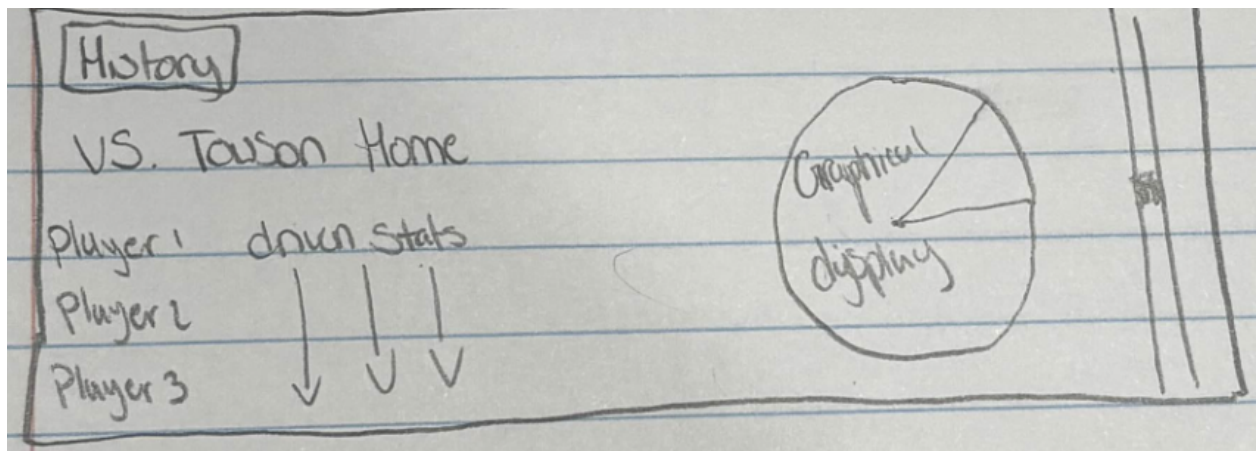 History
VS. Towson Home
Player 1 stats
Player 2
Player 3
Graphical
display